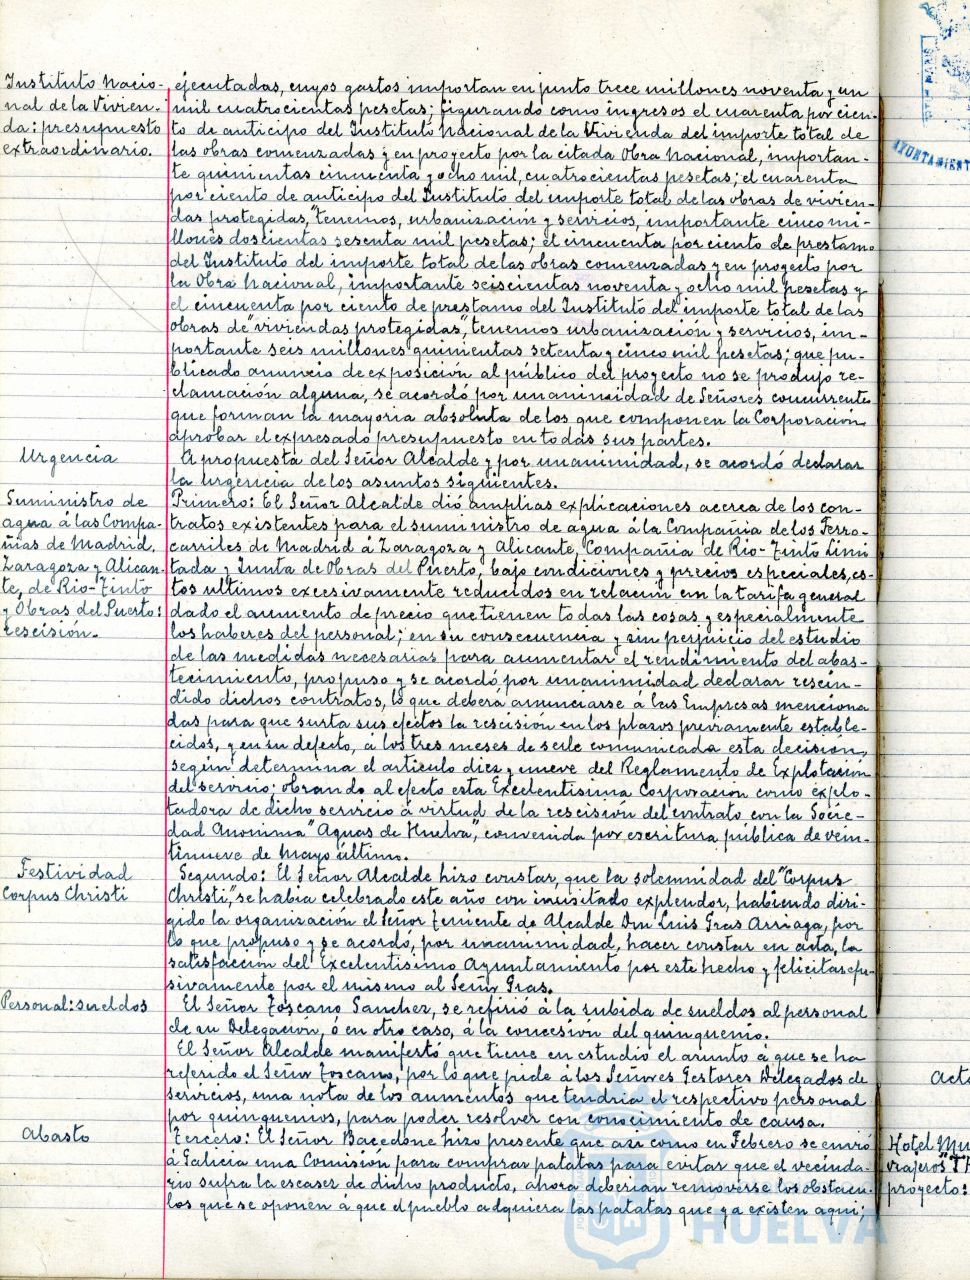 Instituto Nacio-
nal de la Vivien-
da: presupuesto
extraordinario.
ejecutadas, cuyos gastos importan en junto trece millones noventa y un
mil cuatrocientas pesetas; figurando como ingresos el cuarenta por cien-
to de anticipo del Instituto nacional de la Vivienda del importe total de
las obras comenzadas y en proyecto por la citada Obra Nacional, importan-
te quinientas cincuenta y ocho mil, cuatrocientas pesetas; el cuarenta
por ciento de anticipo del Instituto del importe total de las obras de vivien-
das protegidas, "tenemos, urbanización y servicios, importante cinco mi-
llones doscientas sesenta mil pesetas; el cincuenta por ciento de prestamo
del Instituto del importe total de las obras comenzadas y en proyecto por
la Obra Nacional, importante seiscientas noventa y ocho mil pesetas y
el cincuenta por ciento de prestamo del Instituto del importe total de las
obras de "viviendas protegidas", tenemos urbanización y servicios, im-
portante seis millones quinientas setenta y cinco mil pesetas; que pu-
blicado anuncio de exposición al público del proyecto no se produjo re-
clamación alguna, se acordó por unanimidad de Señores concurrente
que forman la mayoria absoluta de los que componen la Corporación
aprobar el expresado presupuesto en todas sus partes.
Urgencia
A propuesta del Señor Alcalde y por unanimidad, se acordó declarar
la urgencia de los asuntos siguientes.
Suministro de
agua á las Compa-
ñias de Madrid,
Zaragoza y Alican-
te, de Rio-Tinto
y Obras del Puerto:
rescisión.-
Primero: El Señor Alcalde dió amplias explicaciones acerca de los con-
tratos existentes para el suministro de agua á la Compañia de los Ferro-
carriles de Madrid á Zaragoza y Alicante, Compañia de Rio-Tinto Limi
tada y Junta de Obras del Puerto, bajo condiciones y precios especiales, es-
tos ultimos excesivamente reducidos en relación con la tarifa general
dado el aumento de precio que tienen todas las cosas y especialmente
los haberes del personal; en su consecuencia y sin perjuicio del estudio
de las medidas necesarias para aumentar el rendimiento del abas-
tecimiento, propuso y se acordó por unanimidad declarar rescin-
dido dichos contratos, lo que deberá anunciarse á las Empresas menciona
das para que surta sus efectos la rescisión en los plazos previamente estable-
cidos, y en su defecto, á los tres meses de serle comunicada esta decisión,
según determina el articulo diez y nueve del Reglamento de Explotación
del servicio; obrando al efecto esta Excelentisima Corporación como explo-
tadora de dicho servicio á virtud de la rescisión del contrato con la Socie-
dad Anonima "Aguas de Huelva", convenida por escritura pública de vein-
tinueve de Mayo último.
Festividad
Corpus Christi
Segundo: El Señor Alcalde hizo constar, que la solemnidad del "Corpus
Christi", se habia celebrado este año con inusitado explendor, habiendo diri-
gido la organización el Señor Teniente de Alcalde Don Luis Gras Arriaga, por
lo que propuso y se acordó, por unanimidad, hacer constar en acta, la
satisfacción del Excelentisimo Ayuntamiento por este hecho y felicitar efu-
sivamente por el mismo al Señor Gras.
Personal: sueldos
El Señor Toscano Sanchez, se refirió á la subida de sueldos al personal
de su Delegacion, ó en otro caso, á la concesion del quinquenio.
El Señor Alcalde manifestó que tiene en estudio el asunto á que se ha
referido el Señor Toscano, por lo que pide á los Señores Gestores Delegados de
servicios, una nota de los aumentos que tendria el respectivo personal
por quinquenios, para poder resolver con conocimiento de causa.
Abasto
Tercero: El Señor Bacedone hizo presente que asi como en Febrero se envió
á Galicia una Comisión para comprar patatas para evitar que el vecinda-
rio sufra la escases de dicho producto, ahora deberian removerse los obstacu-
los que se oponen á que el pueblo adquiera las patatas que ya existen aqui;
AYUNTAMIENT
Acta
Hotel Mu
viajeros
proyecto:
HUELVA